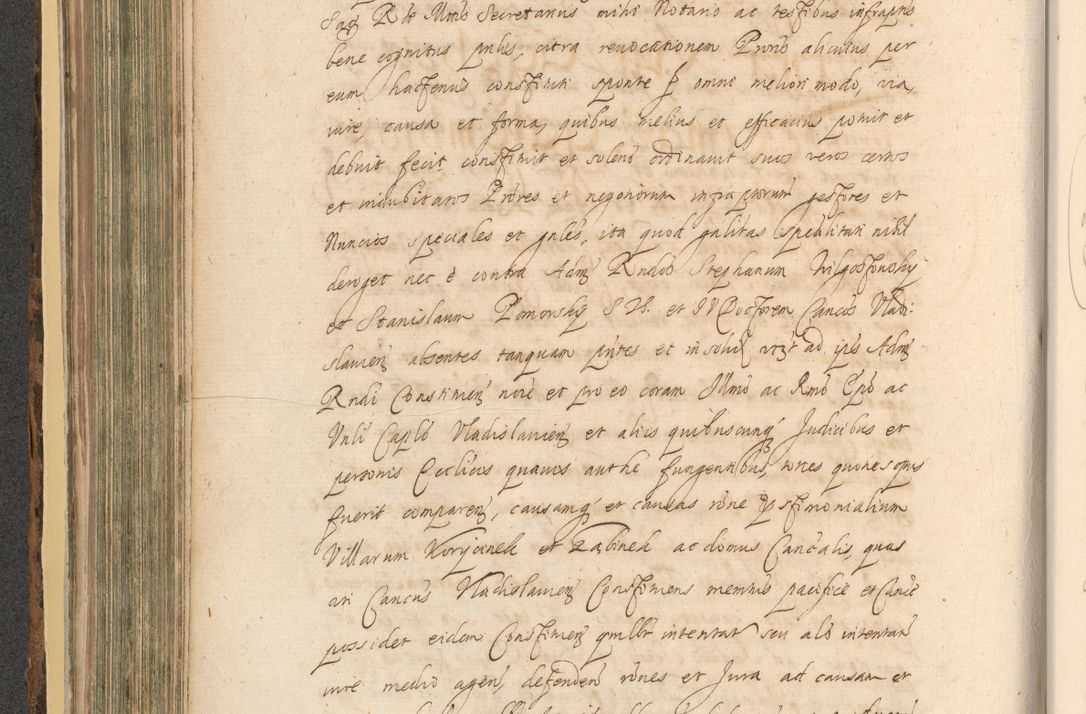 Sacrae Rae Mtis Secretarius mihi Notario ac testibus infraptis
bene cognitus pns, citra revocationem Prorū alicuius per
eum hactenus constituti sponte et omni meliori modo, via,
iure, causa et forma, quibus melius et efficacius potuit et
debuit fecit constituit et solenr ordinavit suos veros certos
et indubitatos Prores et negotiorum infraptorum gestores et
Nuncios speciales et gnles, ita quod gnlitas spealitati nihil
deroget nec e contra Admū Rndos Stephanum
et Stanislaum S. Th. et I V Doctorem Cancos Vladi-
slavien absentes tanquam pntes et in solid vtzt ad ipis Admū
Rndi Constituen noie et pro eo coram Illmo ac Rmo Epo ac
Vnli Caplo Vladislavien et aliis quibuscunq Judicibus et
personis Ecclicis quavis authe fungentibus, toties quoties opus
fuerit comparen, causamq et causas rōne
Villarum et ac domus Cancalis, quas
uti Cancus Vladislavien Constituens memtus pacifice et Cance
possidet eidem Constituen qmlbt intentat seu als intentari
iure medio agen, defenden rōnes et Jura ad causam et